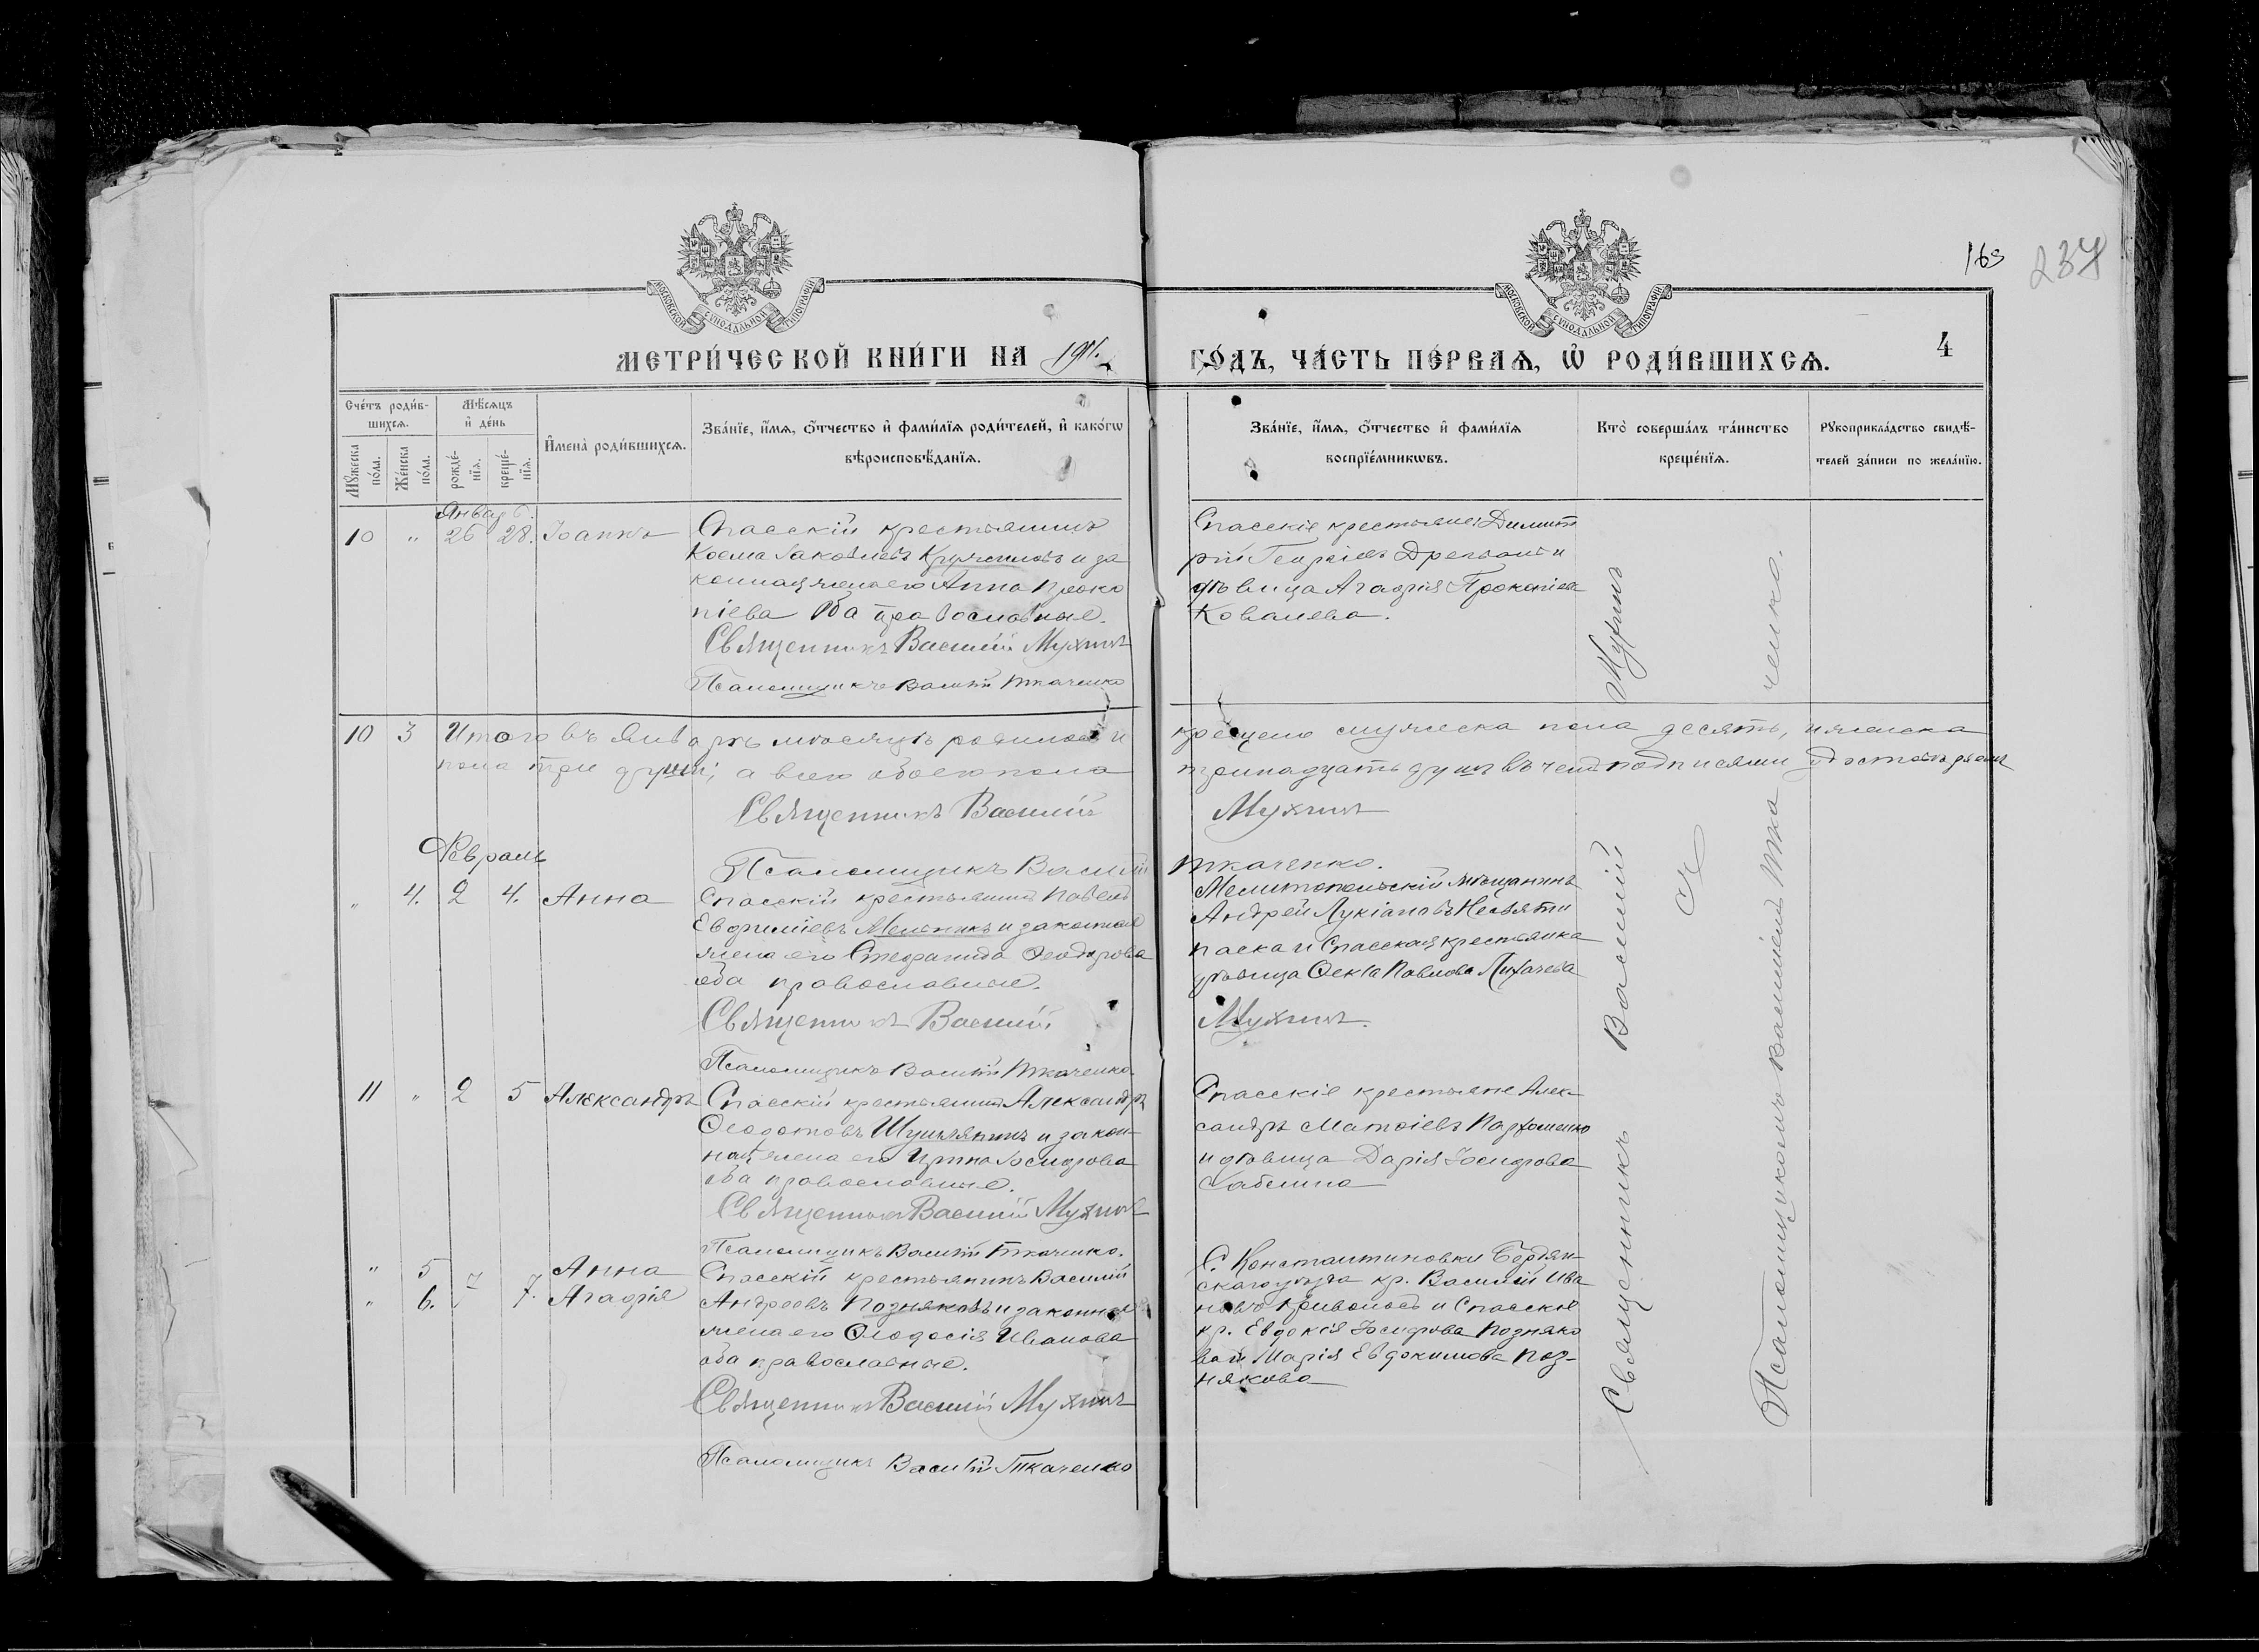 163
237
МОСКОВСКОЙ СѴНОДАЛЬНОЙ ТИПОГРАФІИ
МОСКОВСКОЙ СѴНОДАЛЬНОЙ ТИПОГРАФІИ
МЕТРИ́ЧЕСКОЙ КНИ́ГИ НА 1911.
ГО́ДЪ, ЧА́СТЬ ПЕ́РВАѦ, Ѡ РОДИ́ВШИХСѦ.
4
Сче́тъ роди́в-
шихсѧ.
Мꙋ́жеска
по́ла.
Же́нска
по́ла.
Мѣ́сѧцъ
и҆ де́нь
рожде́-
нїѧ.
креще́-
нїѧ.
И҆мена̀ роди́вшихсѧ.
Зва́нїе, и҆́мѧ, ѻ҆́тчество и҆ фами́лїѧ роди́телей, и҆ како́гѡ
вѣроисповѣ́данїѧ.
Зва́нїе, и҆́мѧ, ѻ҆́тчество и҆ фами́лїѧ
воспрїе́мникѡвъ.
Кто̀ соверша́лъ та́инство
креще́нїѧ.
Рꙋкоприкла́дство свидѣ́-
телей за́писи по жела́нїю.
Январь
10 " 26 28. Іоаннъ
Спасскій крестьянинъ
Косма Іаковлевъ и за
конная жена его Анна Проко
піева Оба православные.
Священникъ Василій Мухинъ
Псаломщикъ Василій Ткаченко
Спасскіе крестьяне: Димит
рій Георгіевъ и
дѣвица Агафія Прокопіева
Ковалева.
10 3 Итого въ Январѣ мѣсяцѣ родилось и
крещено мужеска пола десять, и женска
пола три души, а всего обоего пола
тринадцать душъ въ чемъ подписями удостовѣряемъ
Священникъ Василій
Мухинъ
Псаломщикъ Василій
Ткаченко.
Февраль
" 4. 2 4. Анна
Спасскій крестьянинъ Павелъ
Евфиміевъ Мельникъ и законная
жена его Стефанида Ѳеодорова
оба православные.
Священникъ Василій
Псаломщикъ Василій Ткаченко.
Мелитопольскій мѣщанинъ
Андрей Лукіановъ Несвяти
паска и Спасская крестьянка
дѣвица Ѳекла Павлова Лихачева
Мухинъ.
11 " 2 5 Александръ
Спасскій крестьянинъ Александръ
Ѳеодотовъ и закон-
ная жена его Ирина Іосифова
оба православные.
Священникъ Василій Мухинъ
Псаломщикъ Василій Ткаченко.
Спасскіе крестьяне Алек-
сандръ Матѳіевъ Пархоменко
и дѣвица Дарія Іосифова
" 5 Анна
" 6. 7 7. Агафія
Спасскій крестьянинъ Василій
Андреевъ Поздняковъ и законная
жена его Ѳеодосія Иванова
оба православные.
Священникъ Василій Мухинъ
Псаломщикъ Василій Ткаченко
С. Константиновки Бердян-
скаго уѣзда кр. Василій Ива
новъ и Спасскія
кр. Евдокія Іосифова Позняко
ва и Марія Евдокимова Поз-
някова
Священникъ Василій Мухинъ
съ
Псаломщикомъ Василіемъ Ткаченко.